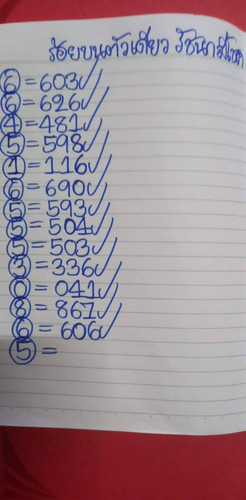 ร้อยบนตัวเดียว
6 = 603✓
6 = 626✓
4 = 481✓
5 = 598✓
1 = 116✓
6 = 690✓
5 = 593✓
5 = 504✓
5 = 503✓
3 = 336✓
0 = 041✓
8 = 861✓
6 = 606✓
5 =